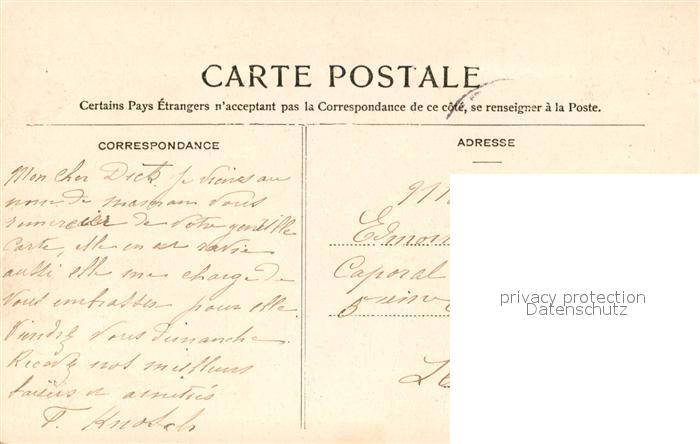 CARTE POSTALE
Certains Pays Étrangers n'acceptant pas la Correspondance de ce côté, se renseigner à la Poste.
CORRESPONDANCE
Mon cher Dick je viens au
nom de maman vous
remercier de votre gentille
Carte, elle en est ravie
aussi elle me charge de
vous embrasser pour elle.
Viendrez vous dimanche.
Recevez nos meilleurs
baisers et amitiés
ADRESSE
Caporal
5eme
privacy protection
Datenschutz